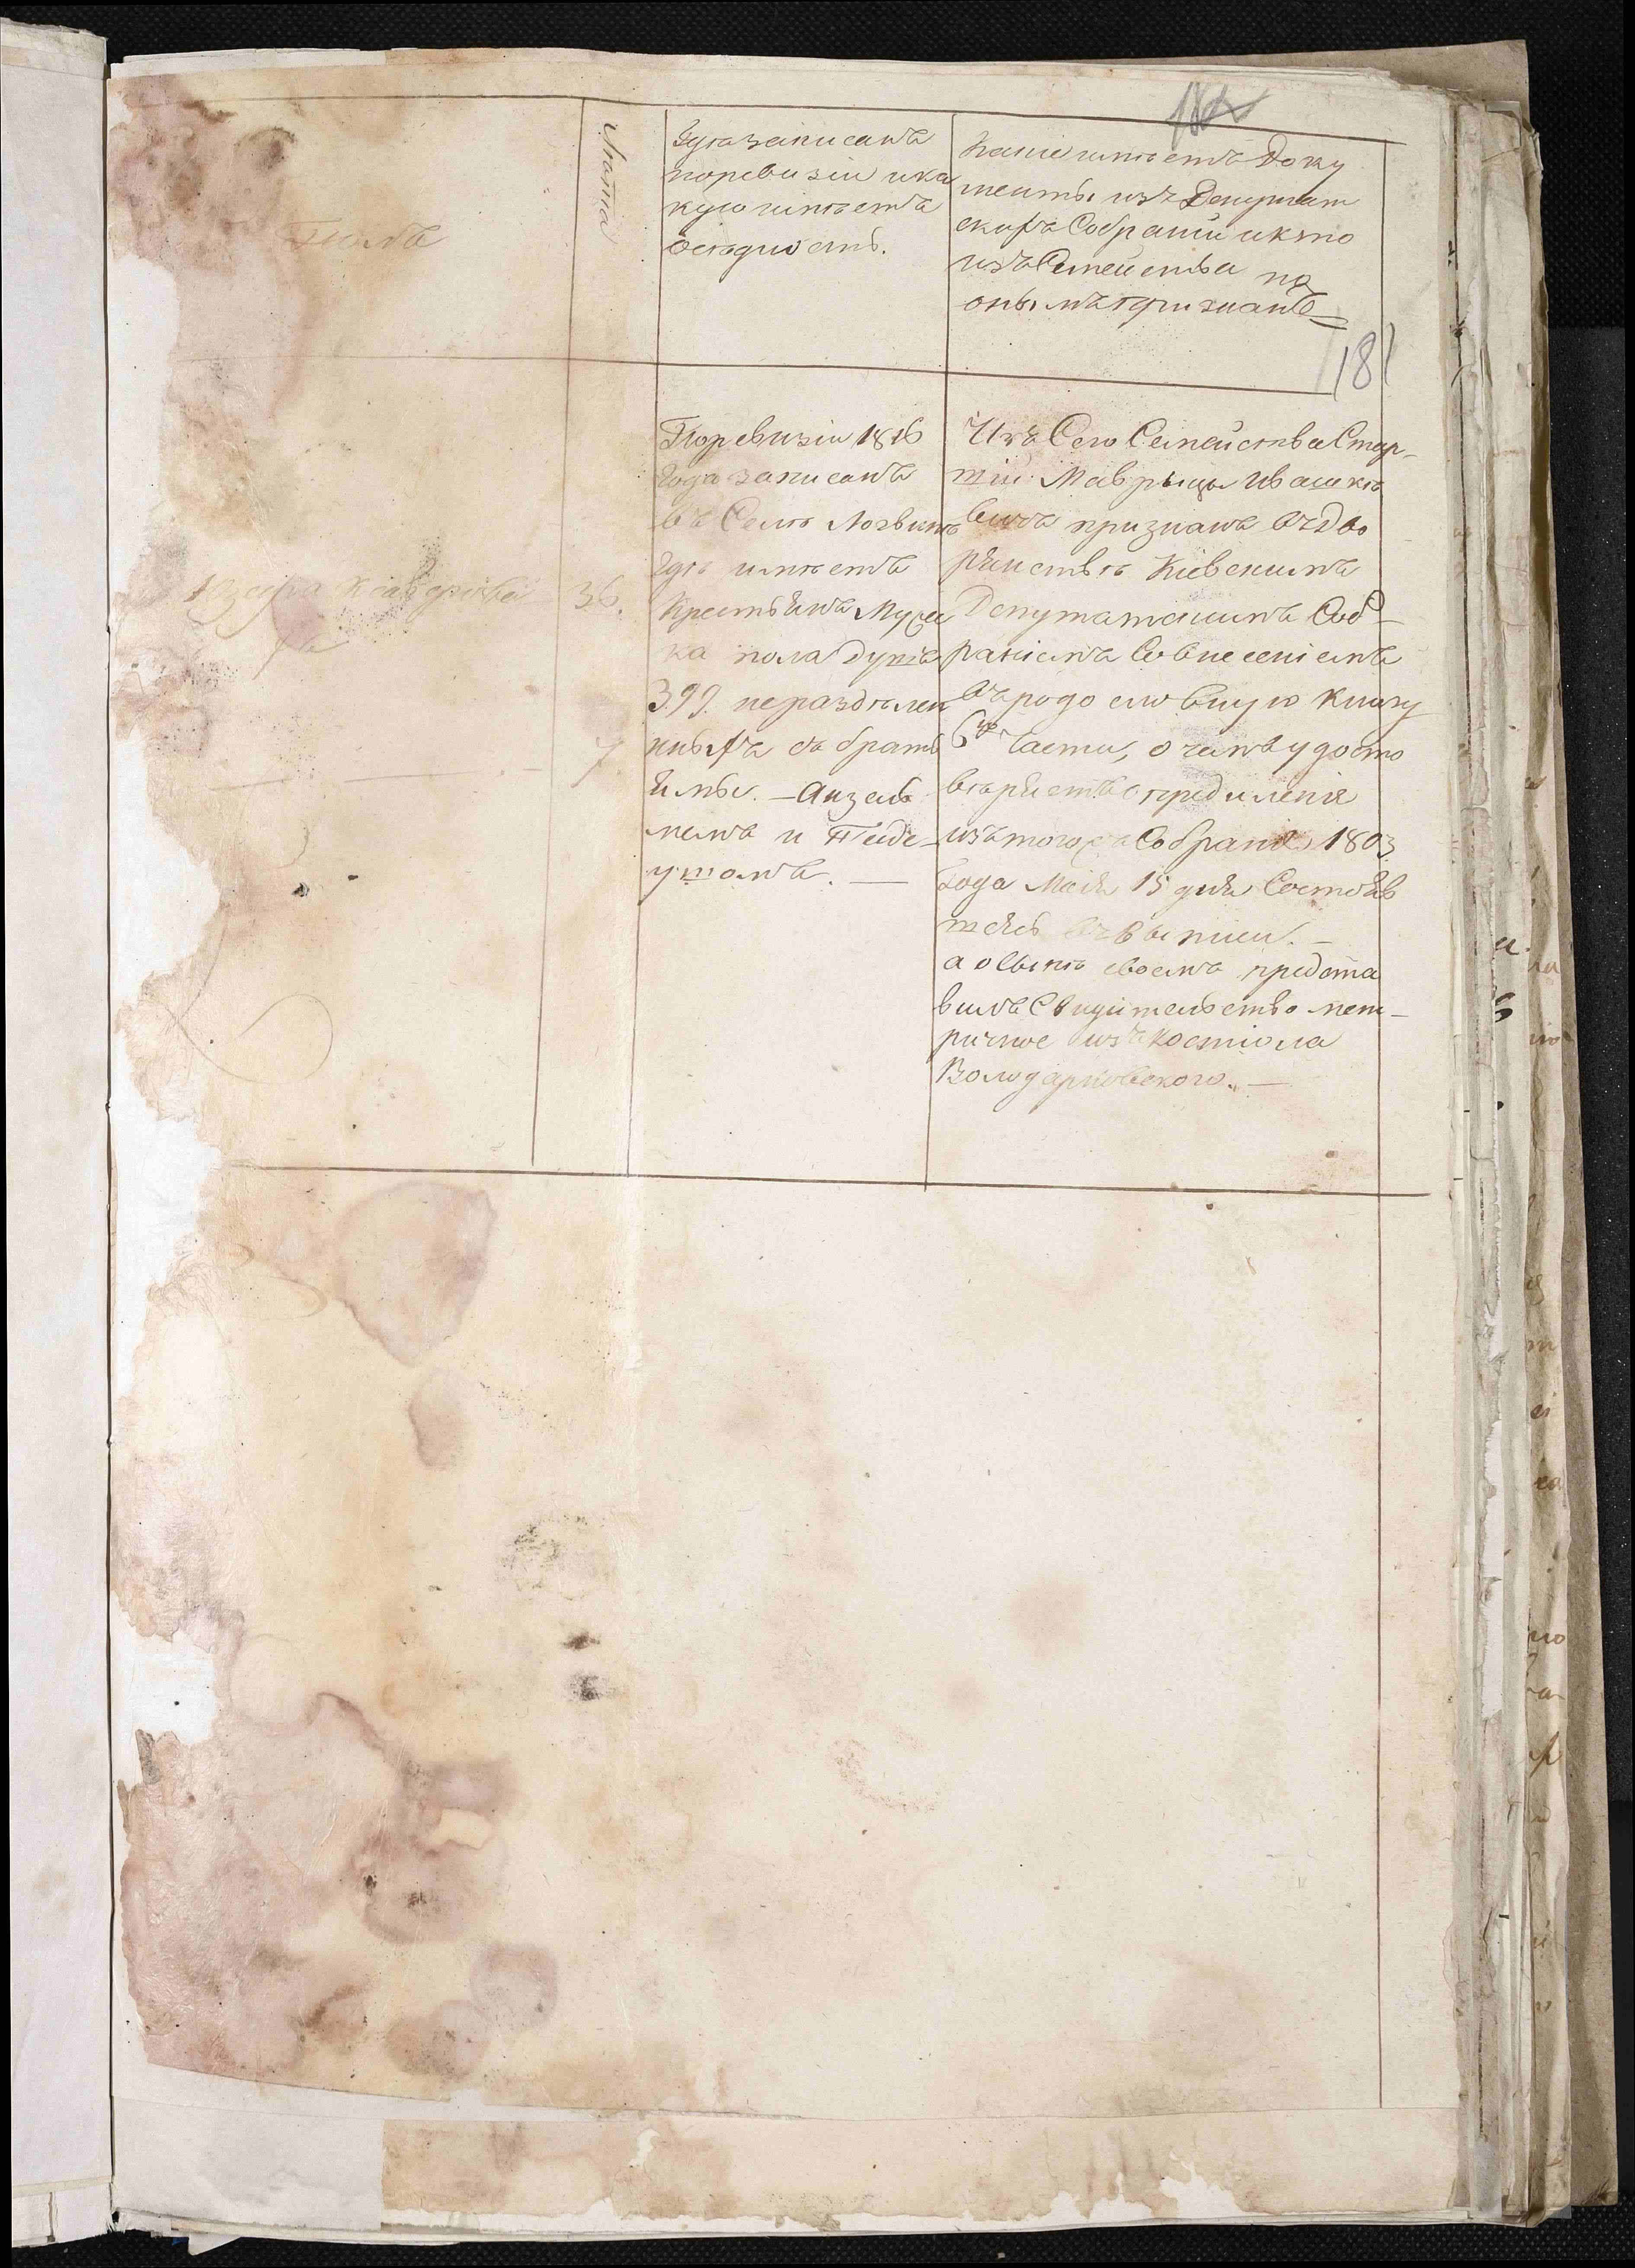 Лѣта
Гдѣ записанъ
поревизіи ика
кую имѣетъ
Осѣдлость.
Какіе имѣетъ Доку
менты изъ Депутат
скихъ Собраніи икто
изъ Семейства по
онымъ признанъ
181
36.
7
Поревизіи 1816
года записанъ
въ Селѣ Логвинѣ
гдѣ имѣетъ
Крестьянъ Муже
ска пола душъ
399. нераздѣлен
ныхъ съ брать
ями. — Анзель
момъ и Таде-
ушомъ. —
Изъ Сего Семейства Стар-
шій Маврыцы Ивашке
вичъ признанъ въ Дво
рянствѣ Кіевскимъ
Депутатскимъ Соб-
раніемъ Совнесеніемъ
въ родословную Книгу
6ю Части, о чемъ удосто
вѣряетъ Опредиленія
изъ того Собранія 1803
года Мая 15 дня Состояв
шеясь въ выписи. —
а о Сынѣ своемъ предста
вилъ Свидительство мет-
ричное изъ Костіола
Володарковского. —